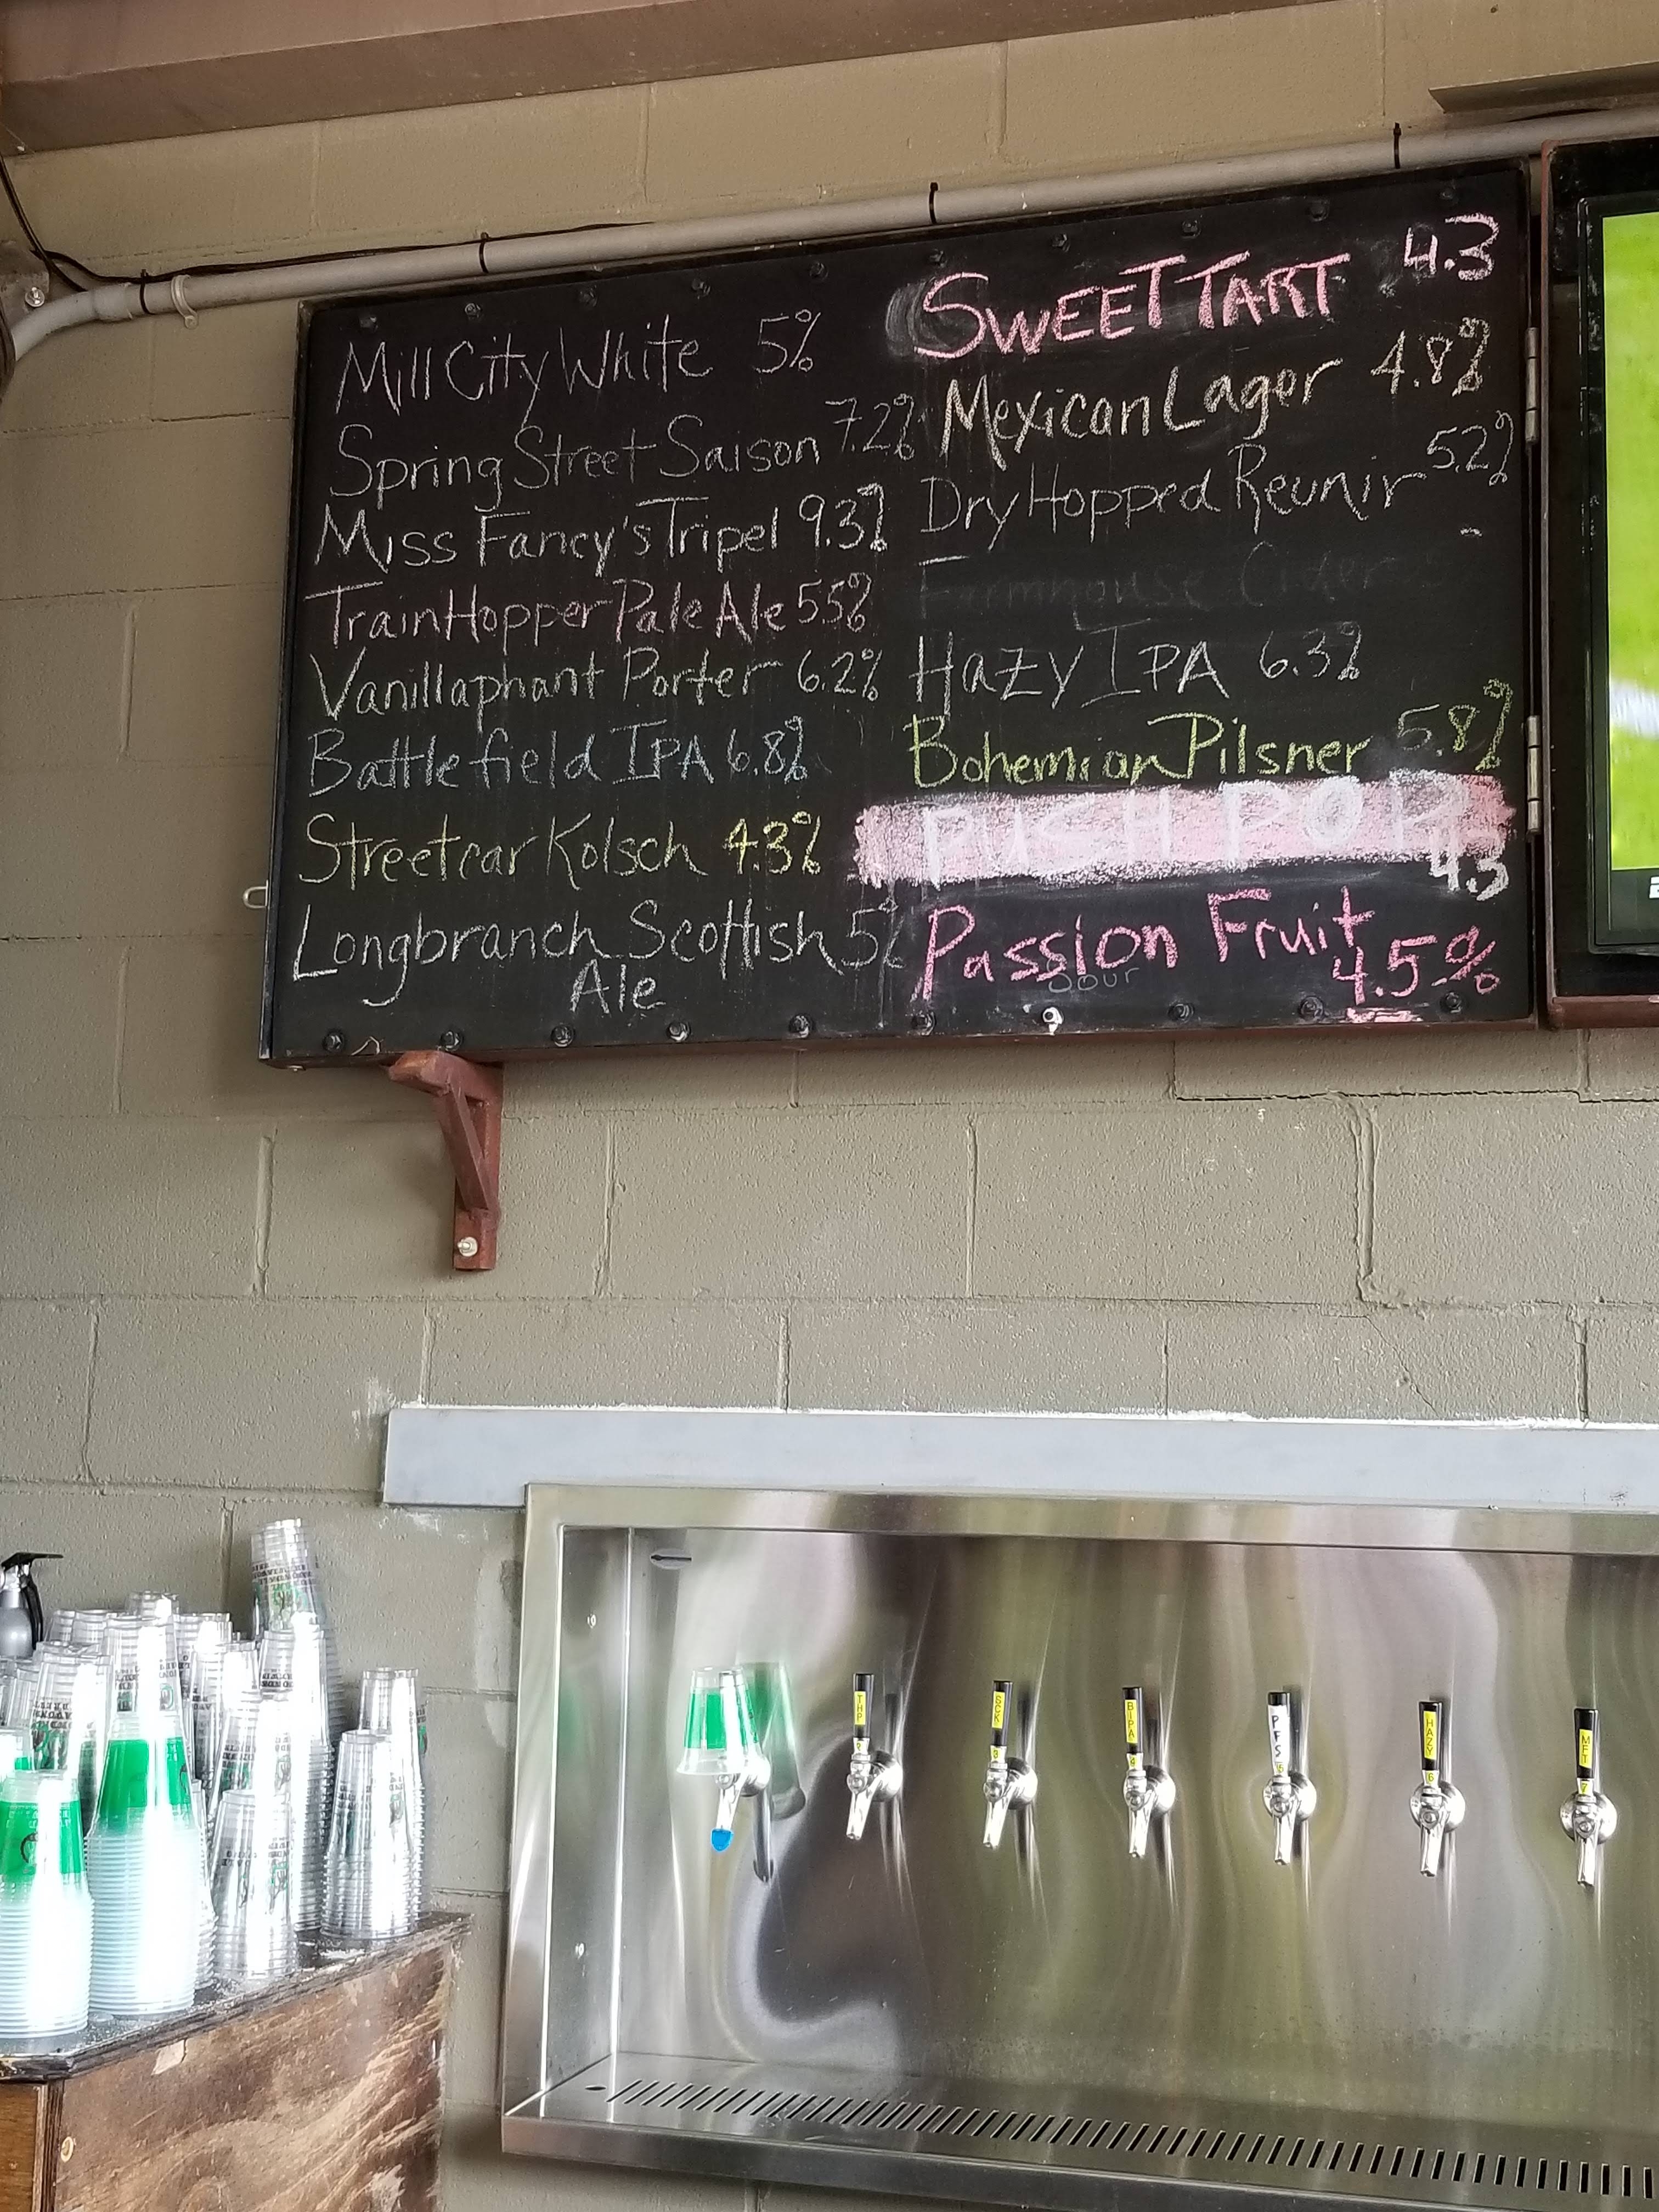 Mill City White 5%
Spring Street Saison 7.2%
Miss Fancy's Tripel 9.3%
TrainHopper Pale Ale 55%
Vanillaphant Porter 6.2%
Battlefield IPA 6.8%
Streetcar Kolsch 4.3%
Longbranch Scottish 5%
Ale
SWEET TART 4.3
Mexican Lager 4.8%
Dry Hopped Reunir 5.2%
Farmhouse Cider
Hazy IPA 6.3%
Bohemian Pilsner 5.8%
PUSH POP
4.3
Passion Fruit
Sour
4.5%
THP
2
SCK
3
BIPA
4
PFS
5
HAZY
6
MFT
7